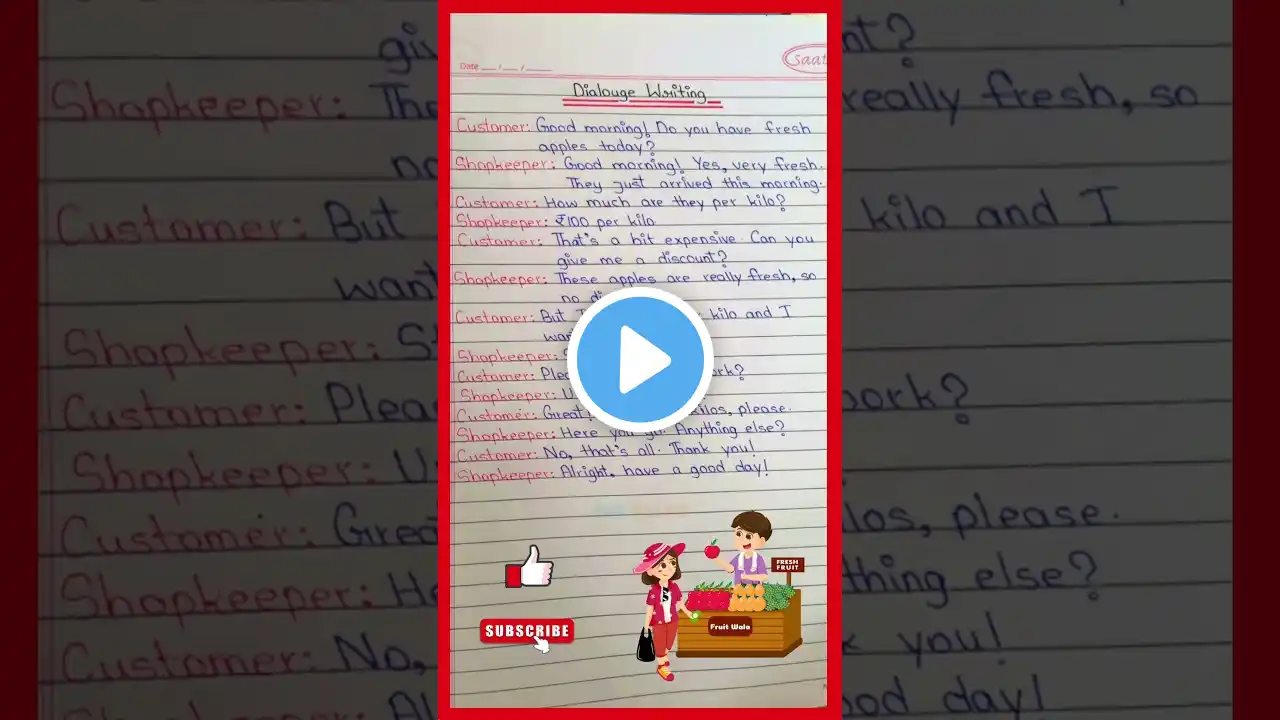 Date __/__/____
Saat
Dialouge Writing
Customer: Good morning! Do you have fresh
apples today?
Shopkeeper: Good morning! Yes, very fresh.
They just arrived this morning.
Customer: How much are they per kilo?
Shopkeeper: ₹100 per kilo
Customer: That's a bit expensive. Can you
give me a discount?
Shopkeeper: These apples are really fresh, so
no
Customer: But kilo and I
want
Shopkeeper:
Customer: Please
Shopkeeper:
Customer: Great kilos, please.
Shopkeeper: Here you go. Anything else?
Customer: No, that's all. Thank you!
Shopkeeper: Alright, have a good day!
FRESH
FRUIT
Fruit Wala
SUBSCRIBE